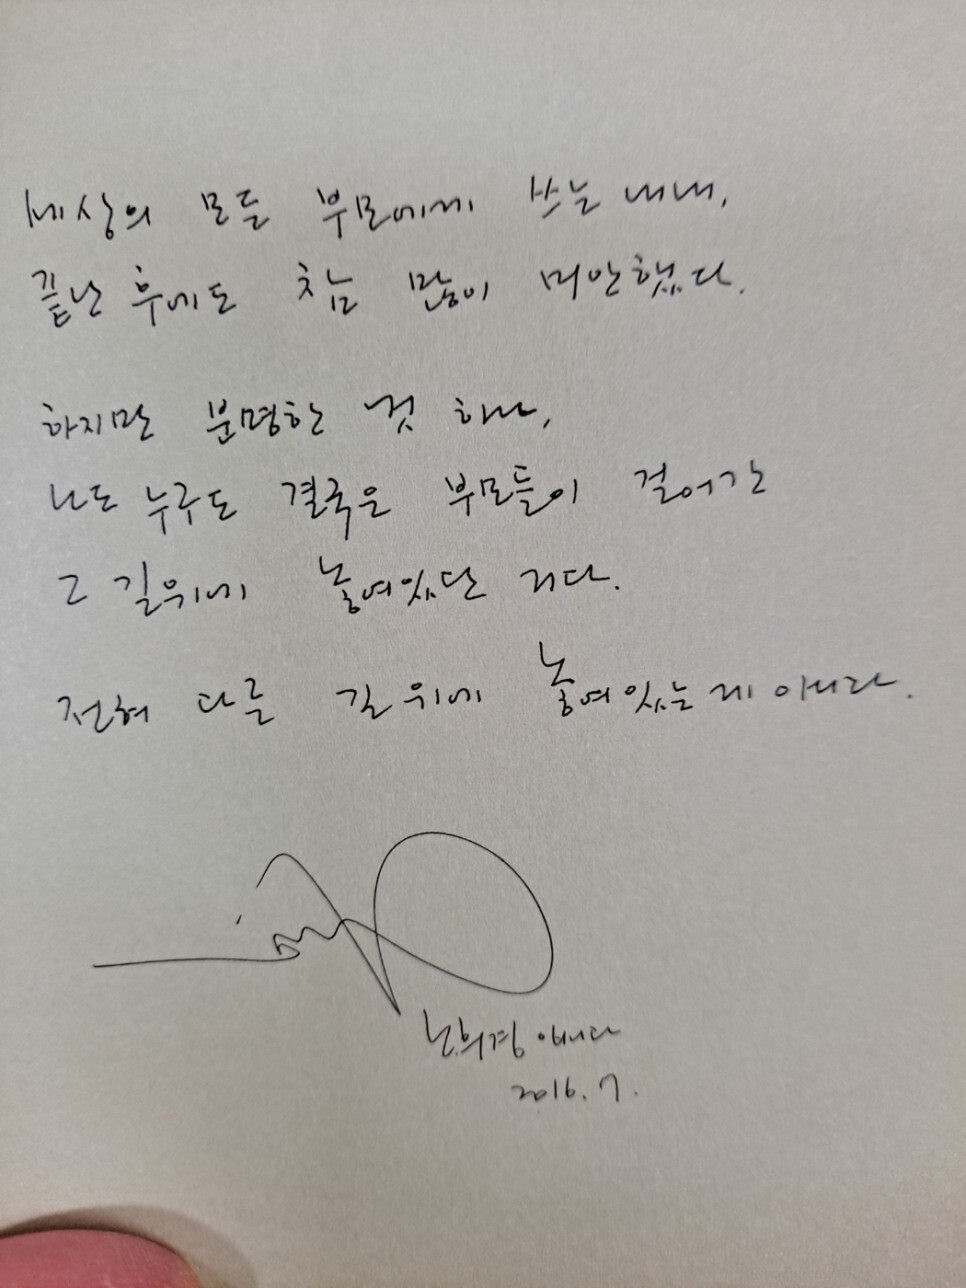 세상의 모든 부모에게 쓰는 내내,
끝난 후에도 참 많이 미안했다.
하지만 분명한 것 하나,
너도 누구도 결국은 부모들이 걸어간
그 길위에 놓여있단 거다.
전혀 다른 길 위에 놓여있는 게 아니라.
노희경입니다
2016. 7.